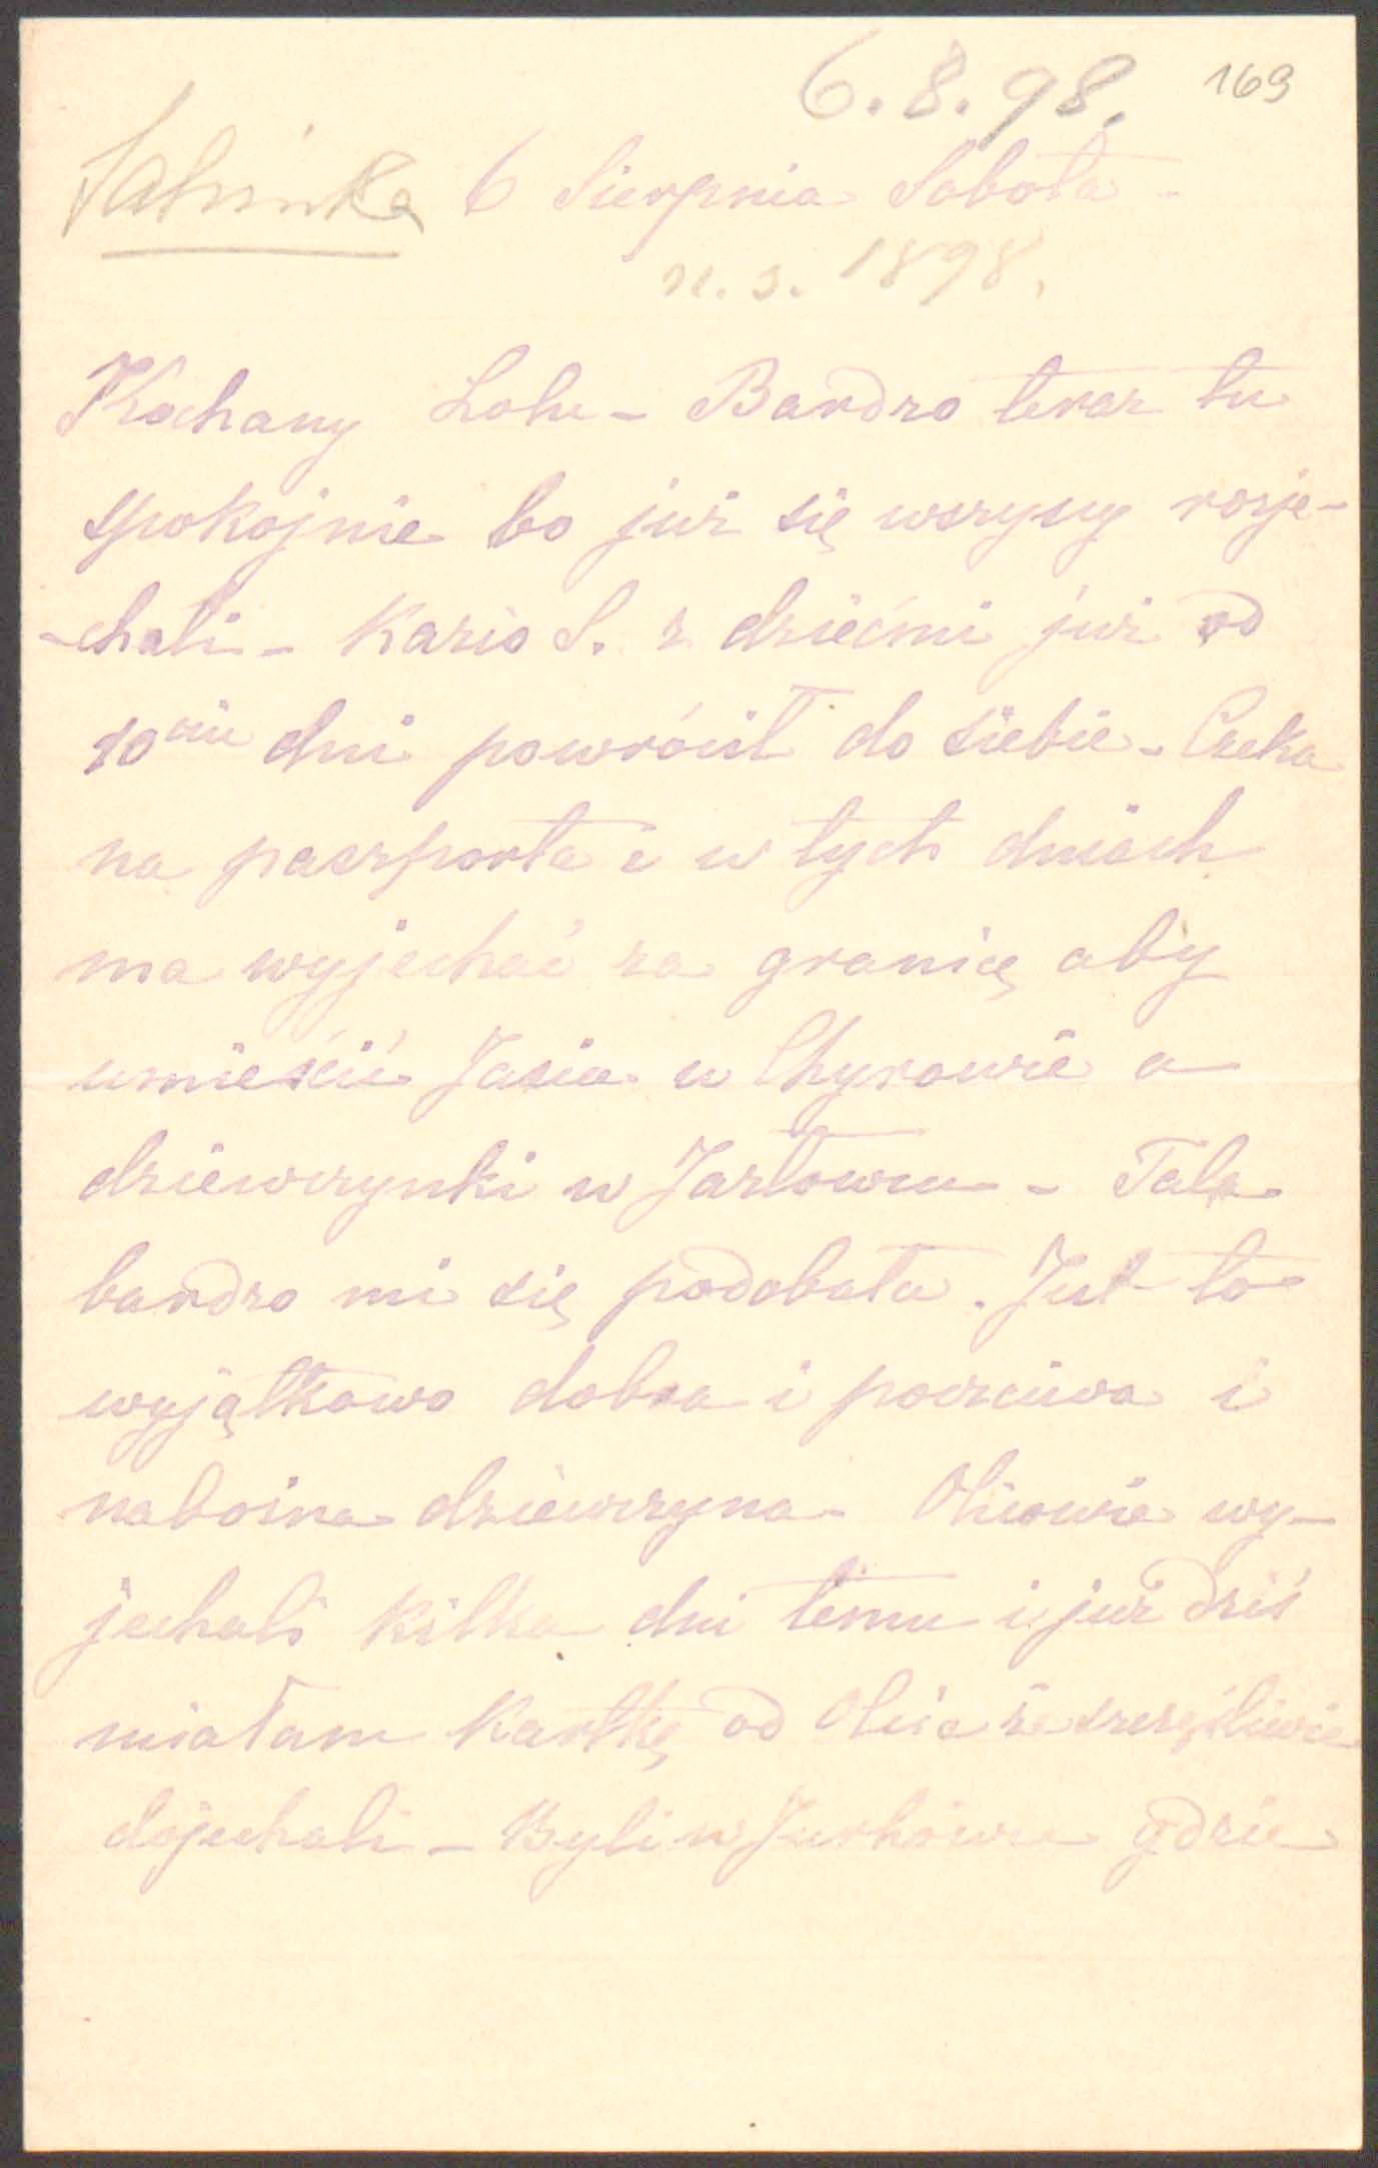 6. 8. 98. 169
6 Sierpnia Sobota -
n. s. 1898.
Kochany Lolu - Bardzo teraz tu
spokojnie bo już się wszyscy rozje-
-chali - Kazio S. z dziećmi już od
10ciu dni powrócił do siebie - Czeka
na paszporta i w tych dniach
ma wyjechać za granicę aby
umieścić Jasia w Chyrowie a
dziewczynki w Jazłowcu - Tala
bardzo mi się podobała. Jest to
wyjątkowo dobra i poczciwa i
nabożna dziewczyna - Olesiowie wy-
jechali kilka dni temu i już dziś
miałam kartkę od Olesia że szczęśliwie
dojechali - Byli w Jurkówce gdzie